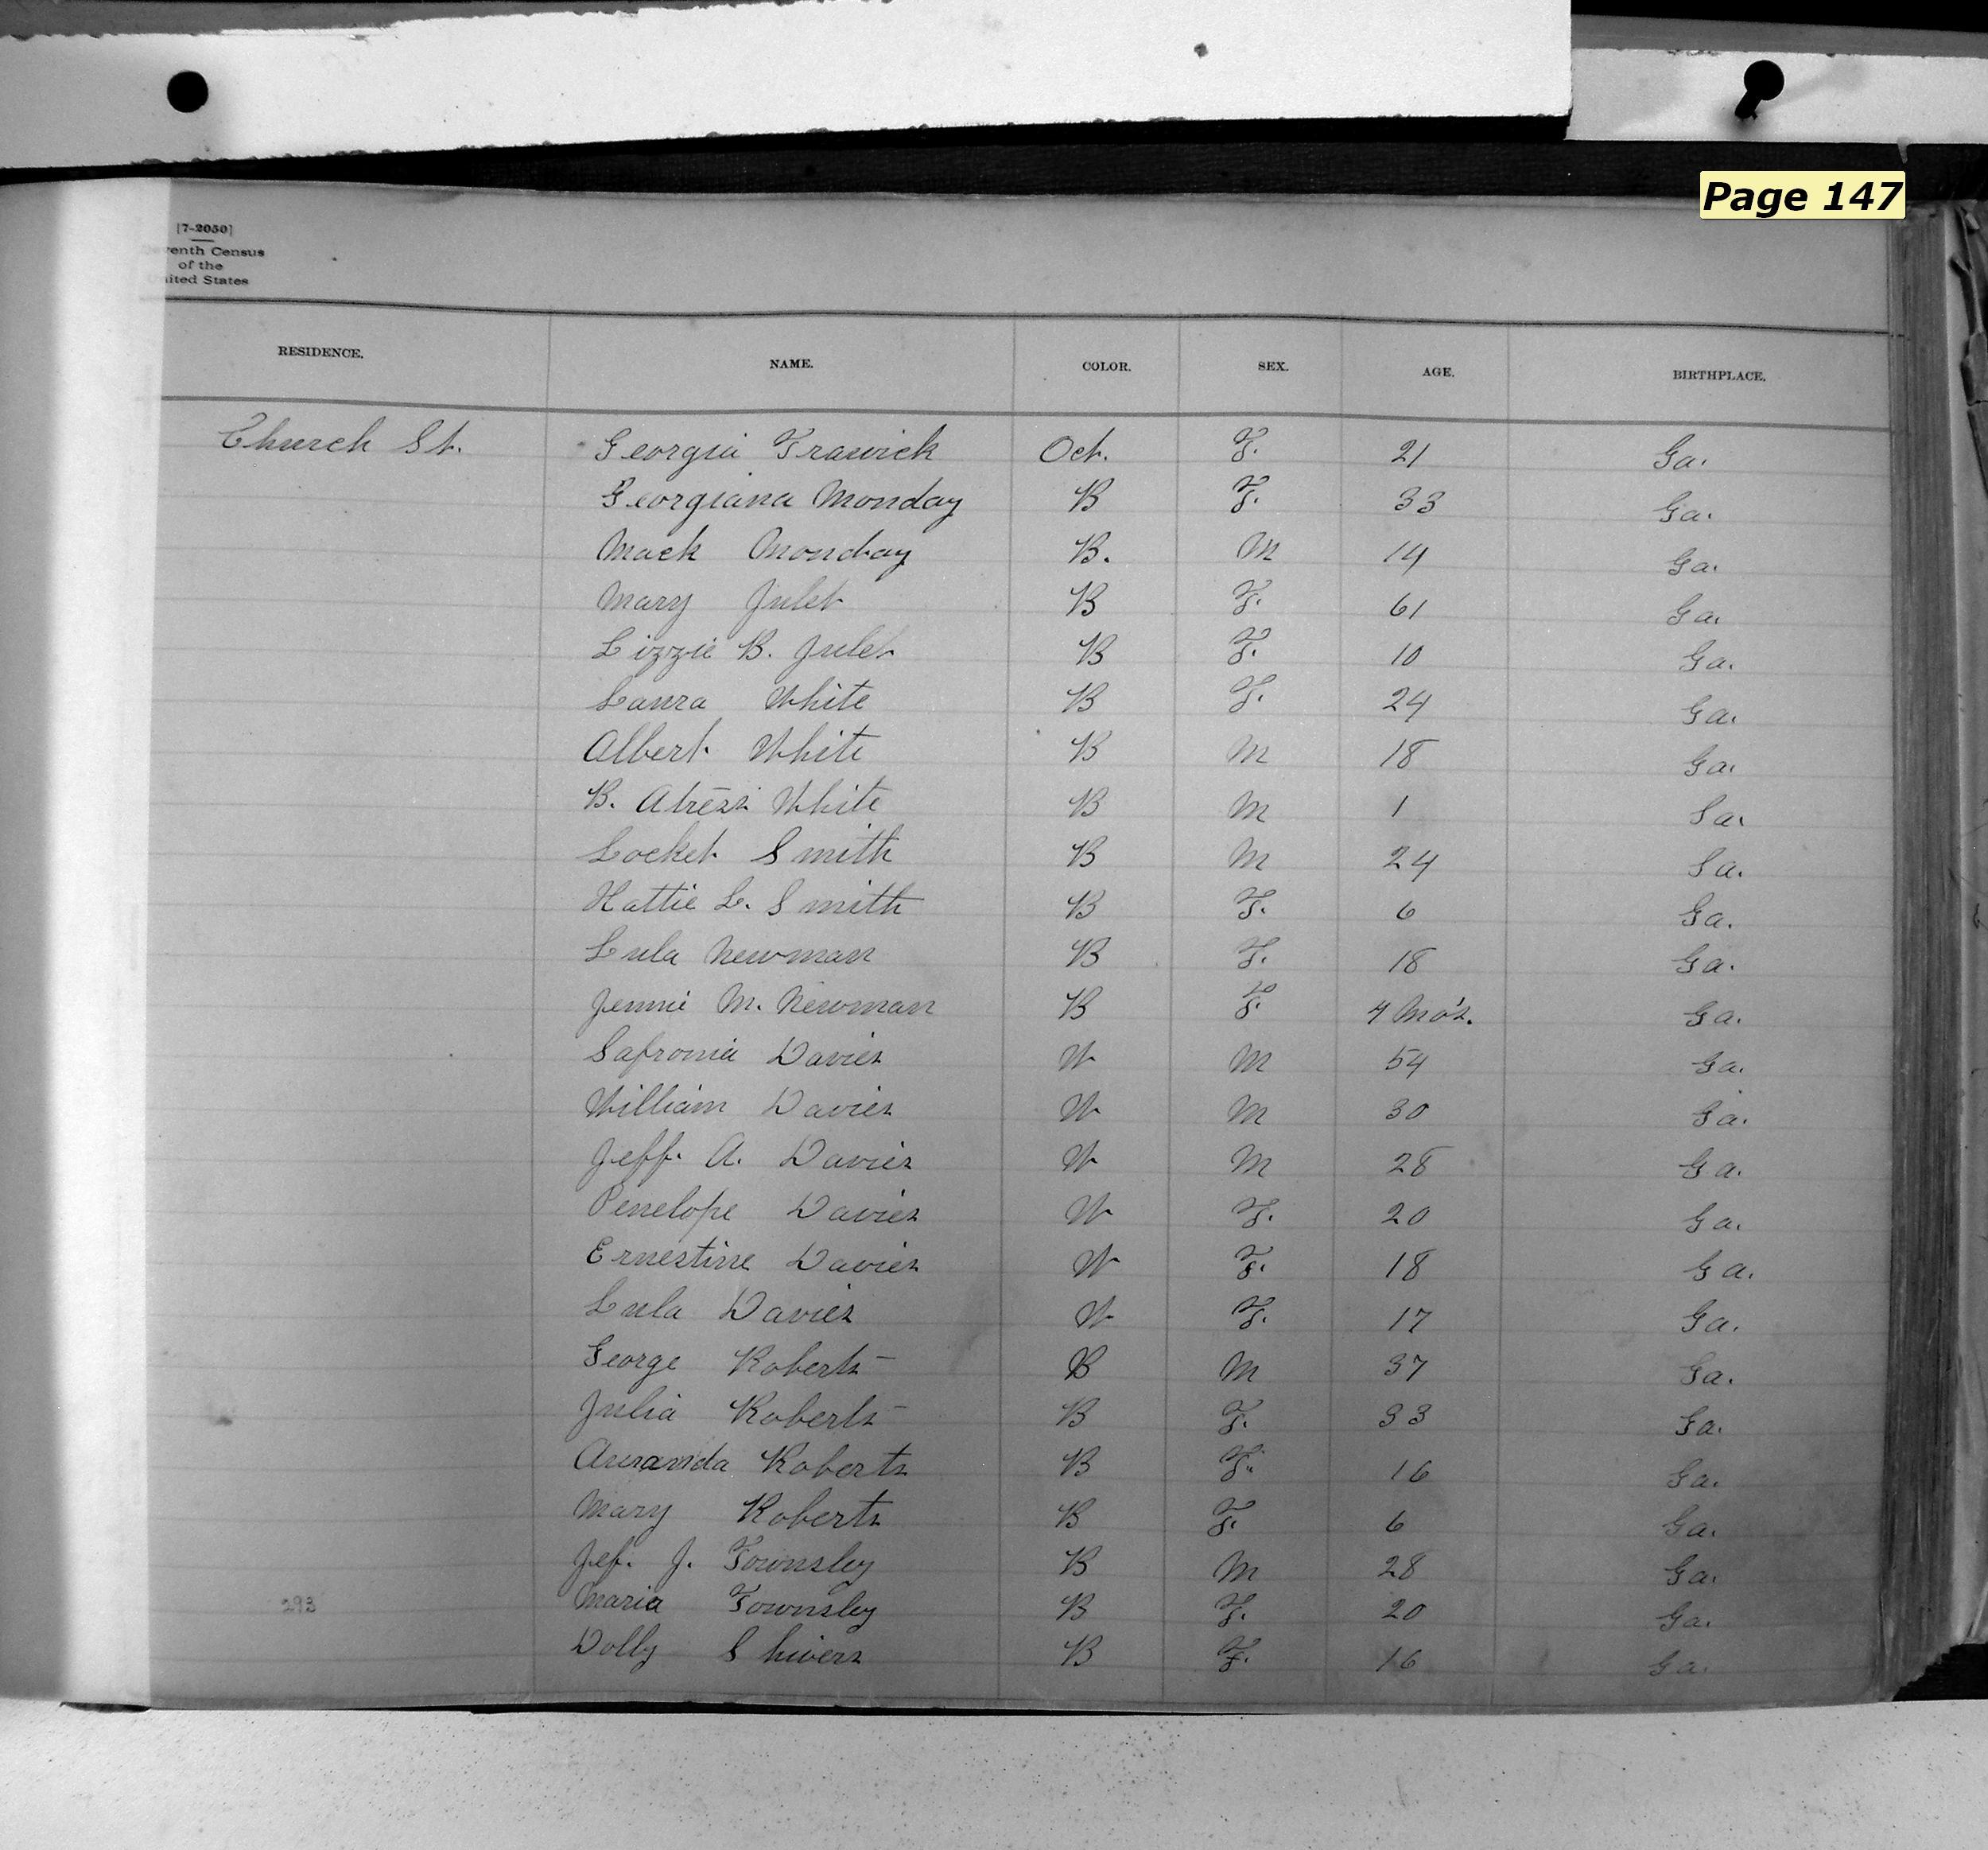 Page 147
[7-2050]
venth Census
of the
nited States
RESIDENCE. NAME. COLOR. SEX. AGE. BIRTHPLACE.
Church St. Georgia Trawick Oct. F. 21 Ga.
Georgiana Monday B F. 33 Ga.
Mack Monday B. M 14 Ga.
Mary Julet B F. 61 Ga.
Lizzie B. Julet B F. 10 Ga.
Laura White B F. 24 Ga.
Albert White B M 18 Ga.
B. White B M 1 Ga.
Locket Smith B M 24 Ga.
Hattie L. Smith B F. 6 Ga.
Lula Newman B F. 18 Ga.
Jennie M. Newman B F. 4 Mo's. Ga.
Safronia Davies W M 54 Ga.
William Davies W M 30 Ga.
Jeff. A. Davies W M 28 Ga.
Penelope Davies W F. 20 Ga.
Ernestine Davies W F. 18 Ga.
Lula Davies W F. 17 Ga.
George Roberts B M 37 Ga.
Julia Roberts B F. 33 Ga.
Amanda Roberts B F. 16 Ga.
Mary Roberts B F. 6 Ga.
Jef. J. Townsley B M 28 Ga.
293 Maria Townsley B F. 20 Ga.
Dolly Shivers B F. 16 Ga.